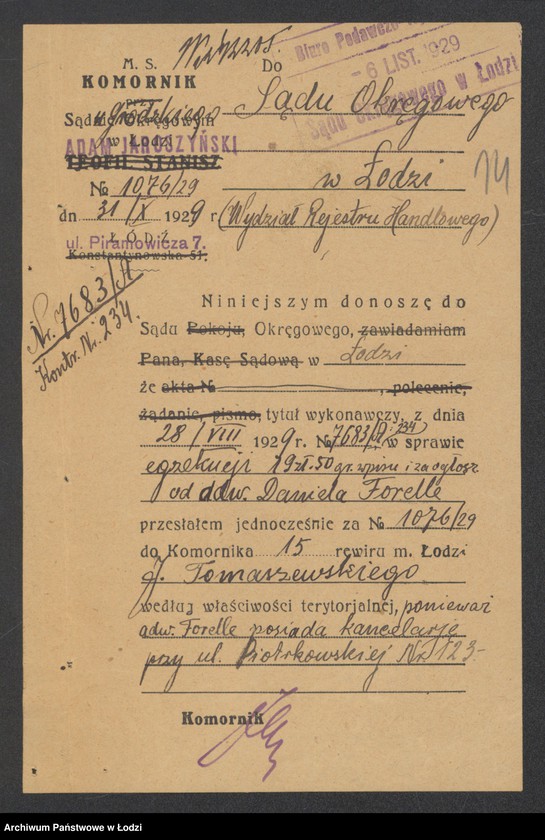 M. S.
KOMORNIK
przy
Sądzie Okręgowym
Grodzkiego
w Łodzi
ADAM JAROSZYŃSKI
TEOFIL STANISZ
№ 1076/29
dn 31/X 1929 r
ŁÓDŹ
ul. Piramowicza 7.
Konstantynowska 51.
Do
Biuro Podawcze
-6 LIST. 1929
Sądu Okręgowego w Łodzi
Sądu Okręgowego
w Łodzi
14
(Wydział Rejestru Handlowego)
Nr. 7683/A
Kontr. Nr. 234.
Niniejszym donoszę do
Sądu Pokoju, Okręgowego, zawiadamiam
Pana, Kasę Sądową w Łodzi
że akta № , polecenie,
żądanie, pismo, tytuł wykonawczy, z dnia
28/VIII 1929 r. № 7683/A/234 w sprawie
egzekucji 29 zł. 50 gr. wpisu i za ogłosz
od adw. Daniela Forelle
przesłałem jednocześnie za № 1076/29
do Komornika 15 rewiru m. Łodzi
J. Tomaszewskiego
według właściwości terytorjalnej, ponieważ
adw. Forelle posiada kancelarję
przy ul. Piotrkowskiej Nr. 123-
Komornik
Archiwum Państwowe w Łodzi